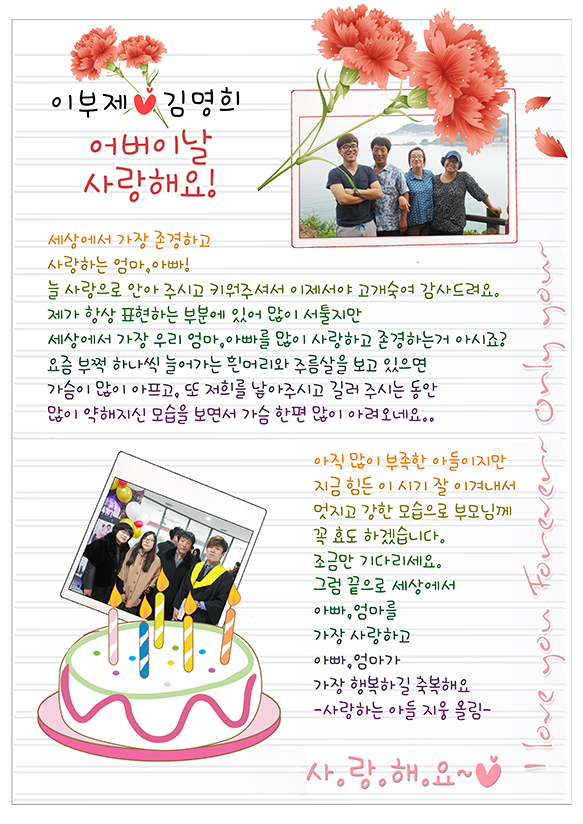 이부제 ♥ 김명희
어버이날
사랑해요!
세상에서 가장 존경하고
사랑하는 엄마,아빠!
늘 사랑으로 안아 주시고 키워주셔서 이제서야 고개숙여 감사드려요.
제가 항상 표현하는 부분에 있어 많이 서툴지만
세상에서 가장 우리 엄마,아빠를 많이 사랑하고 존경하는거 아시죠?
요즘 부쩍 하나씩 늘어가는 흰머리와 주름살을 보고 있으면
가슴이 많이 아프고, 또 저희를 낳아주시고 길러 주시는 동안
많이 약해지신 모습을 보면서 가슴 한편 많이 아려오네요..
아직 많이 부족한 아들이지만
지금 힘든 이 시기 잘 이겨내서
멋지고 강한 모습으로 부모님께
꼭 효도 하겠습니다.
조금만 기다리세요.
그럼 끝으로 세상에서
아빠,엄마를
가장 사랑하고
아빠,엄마가
가장 행복하길 축복해요
-사랑하는 아들 지웅 올림-
사.랑.해.요~♥
I love you Forever~ Only you~